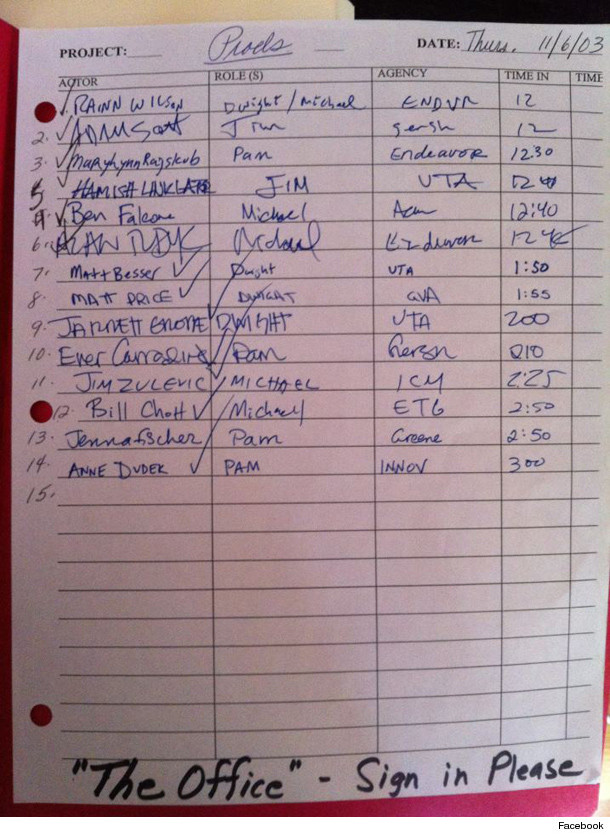 PROJECT: DATE: Thurs. 11/6/03
ACTOR ROLE (S) AGENCY TIME IN TIME
RAINN WILSON Dwight / Michael ENDVR 12
2. Adam Scott Jim gersh 12
3. MaryLynn Rajskub Pam Endeavor 12:30
5 HAMISH LINKLATER JIM UTA
4. Ben Falcone Michael 12:40
6. ALAN TUDYK Michael Endeavor
7. MATT BESSER Dwight UTA 1:50
8. MATT PRICE DWIGHT GVA 1:55
9. DWIGHT UTA 200
10. Ever Carradine Pam Gersh 210
11. JIM ZULEVIC MICHAEL ICM 2:25
12. Bill Chott Michael ETG 2:50
13. Jenna Fischer Pam Greene 2:50
14. ANNE DUDEK PAM INNOV 300
15.
"The Office" - Sign in Please
Facebook